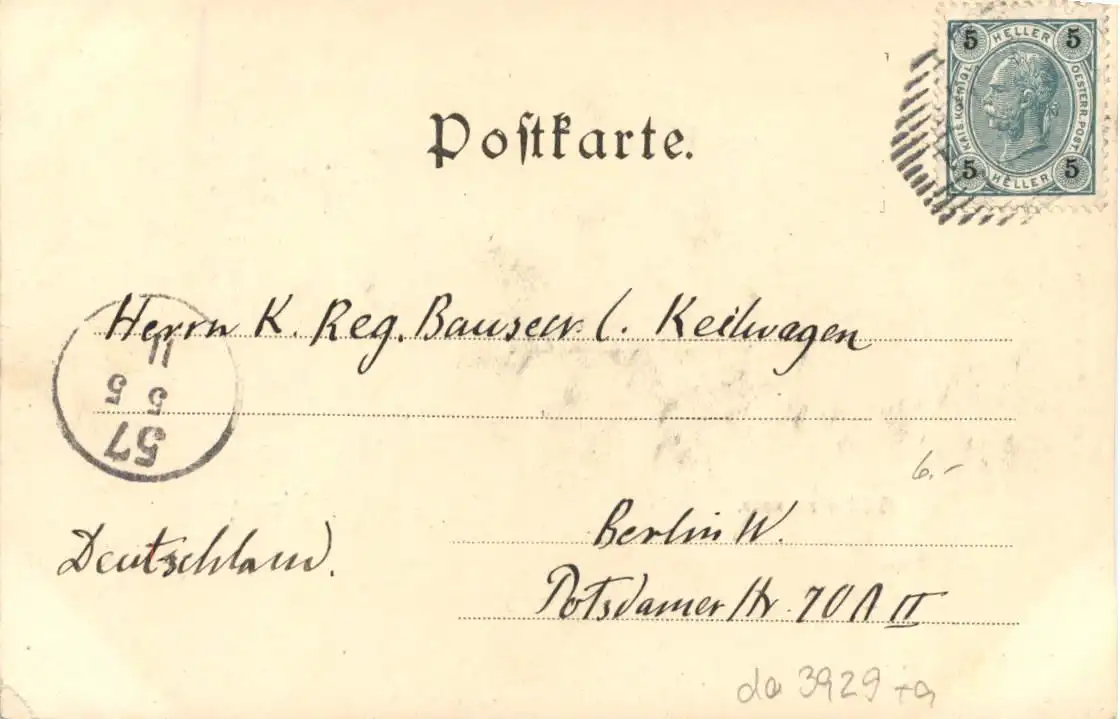 5 HELLER 5
KAIS. KOENIGL. OESTERR. POST
5 HELLER 5
Postkarte.
Herrn K. Reg. Bausecr. C. Keilwagen
11
5 5
57
6.-
Deutschland.
Berlin W.
Potsdamer Str. 70A II
da 3929 +a